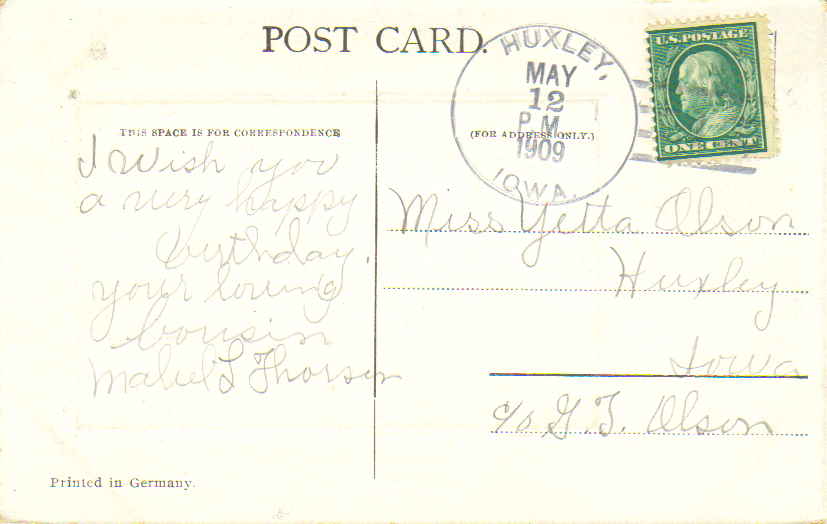 POST CARD.
HUXLEY,
MAY
12
P M
1909
IOWA.
U.S. POSTAGE
ONE CENT
THIS SPACE IS FOR CORRESPONDENCE
(FOR ADDRESS ONLY.)
I wish you
a very happy
birthday.
your loving
cousin
Mabel L Thorsen
Miss Yetta Olson
Huxley
Iowa
c/o G. T. Olson
Printed in Germany.